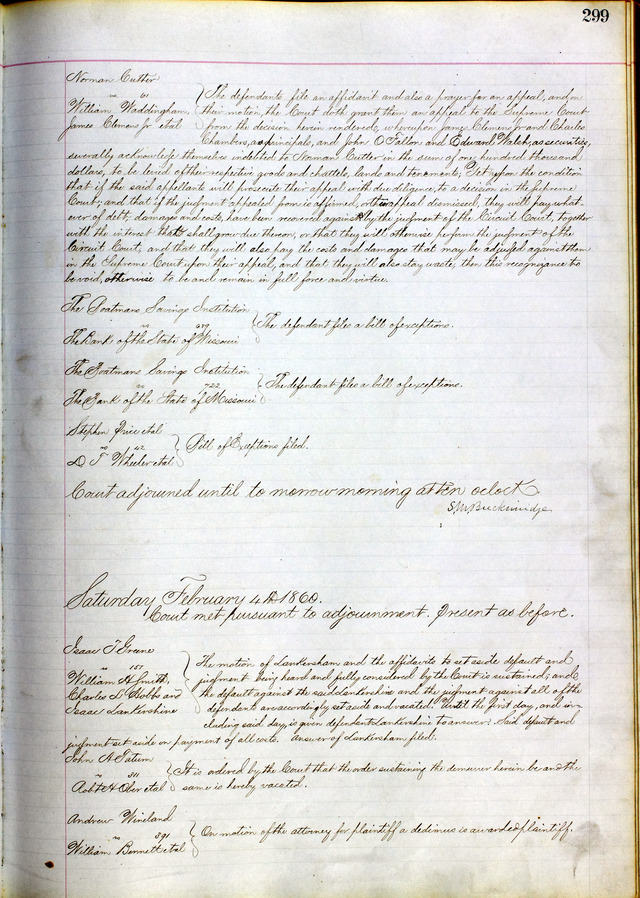 299
Norman Cutter
vs 61
William Waddingham,
James Clemens Jr. etal
The defendants file an affidavit and also a prayer for an appeal, and on
their motion, the Court doth grant them an appeal to the Supreme Court
from the decision herein rendered, whereupon James Clemens Jr and Charles
Chambers, as principals, and John O'Fallon and Edward Walsh, as securities,
severally acknowledge themselves indebted to Norman Cutler in the sum of one hundred thousand
dollars, to be levied of their respective goods and chattels, lands and tenements; Yet upon the condition
that if the said appellants will prosecute their appeal with due diligence, to a decision in the Supreme
Court; and that if the judgment appealed from is affirmed, or the appeal dismissed, they will pay what-
ever of debt, damages and costs, have been recovered against by the judgment of the Circuit Court, together
with the interest that shall grow due thereon, or that they will otherwise perform the judgment of the
Circuit Court, and that they will also pay the costs and damages that may be adjudged against them
in the Supreme Court upon their appeal, and that they will also stay waste; then this recognizance to
be void, otherwise to be and remain in full force and virtue.
The Boatmans Savings Institution
vs 279
The Bank of the State of Missouri
The defendant files a bill of exceptions.
The Boatmans Savings Institution
vs 722
The Bank of the State of Missouri
The defendant files a bill of exceptions.
Stephen Price etal
vs 42
D T Wheeler etal
Bill of Exceptions filed.
Court adjourned until to morrow morning at ten oclock
S. M. Breckinridge
Saturday February 4th 1860.
Court met pursuant to adjournment. Present as before.
Isaac T Greene
vs 157
William H Smith,
Charles D Hobbs and
Isaac Lankershine
The motion of Lankersham and the affidavits to set aside default and
judgment being heard and fully considered by the Court is sustained; and
the default against the said Lankershine and the judgment against all of the
defendants are accordingly set aside and vacated. Until the first day, and in-
cluding said day, is given defendant Lankershine to answer. Said default and
judgment set aside on payment of all costs. Answer of Lankersham filed.
John A Tatum
vs 311
Robt H Ober etal
It is ordered by the Court that the order sustaining the demurrer herein be and the
same is hereby vacated.
Andrew Wineland
vs 391
William Bennett etal
On motion of the attorney for plaintiff a dedimus is awarded plaintiff.